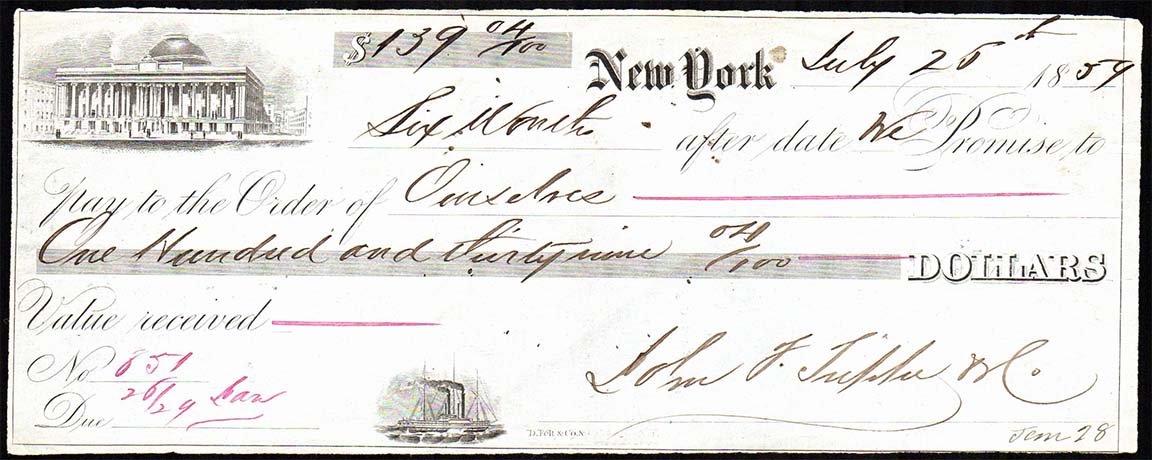 $139 04/100
New York July 26th 1859
Six Months after date We Promise to
Pay to the Order of Ourselves
One Hundred and thirty nine 04/100 DOLLARS
Value received
No 851
Due 26/29 Jan
John F. &Co.
D. Felt & Co.
28